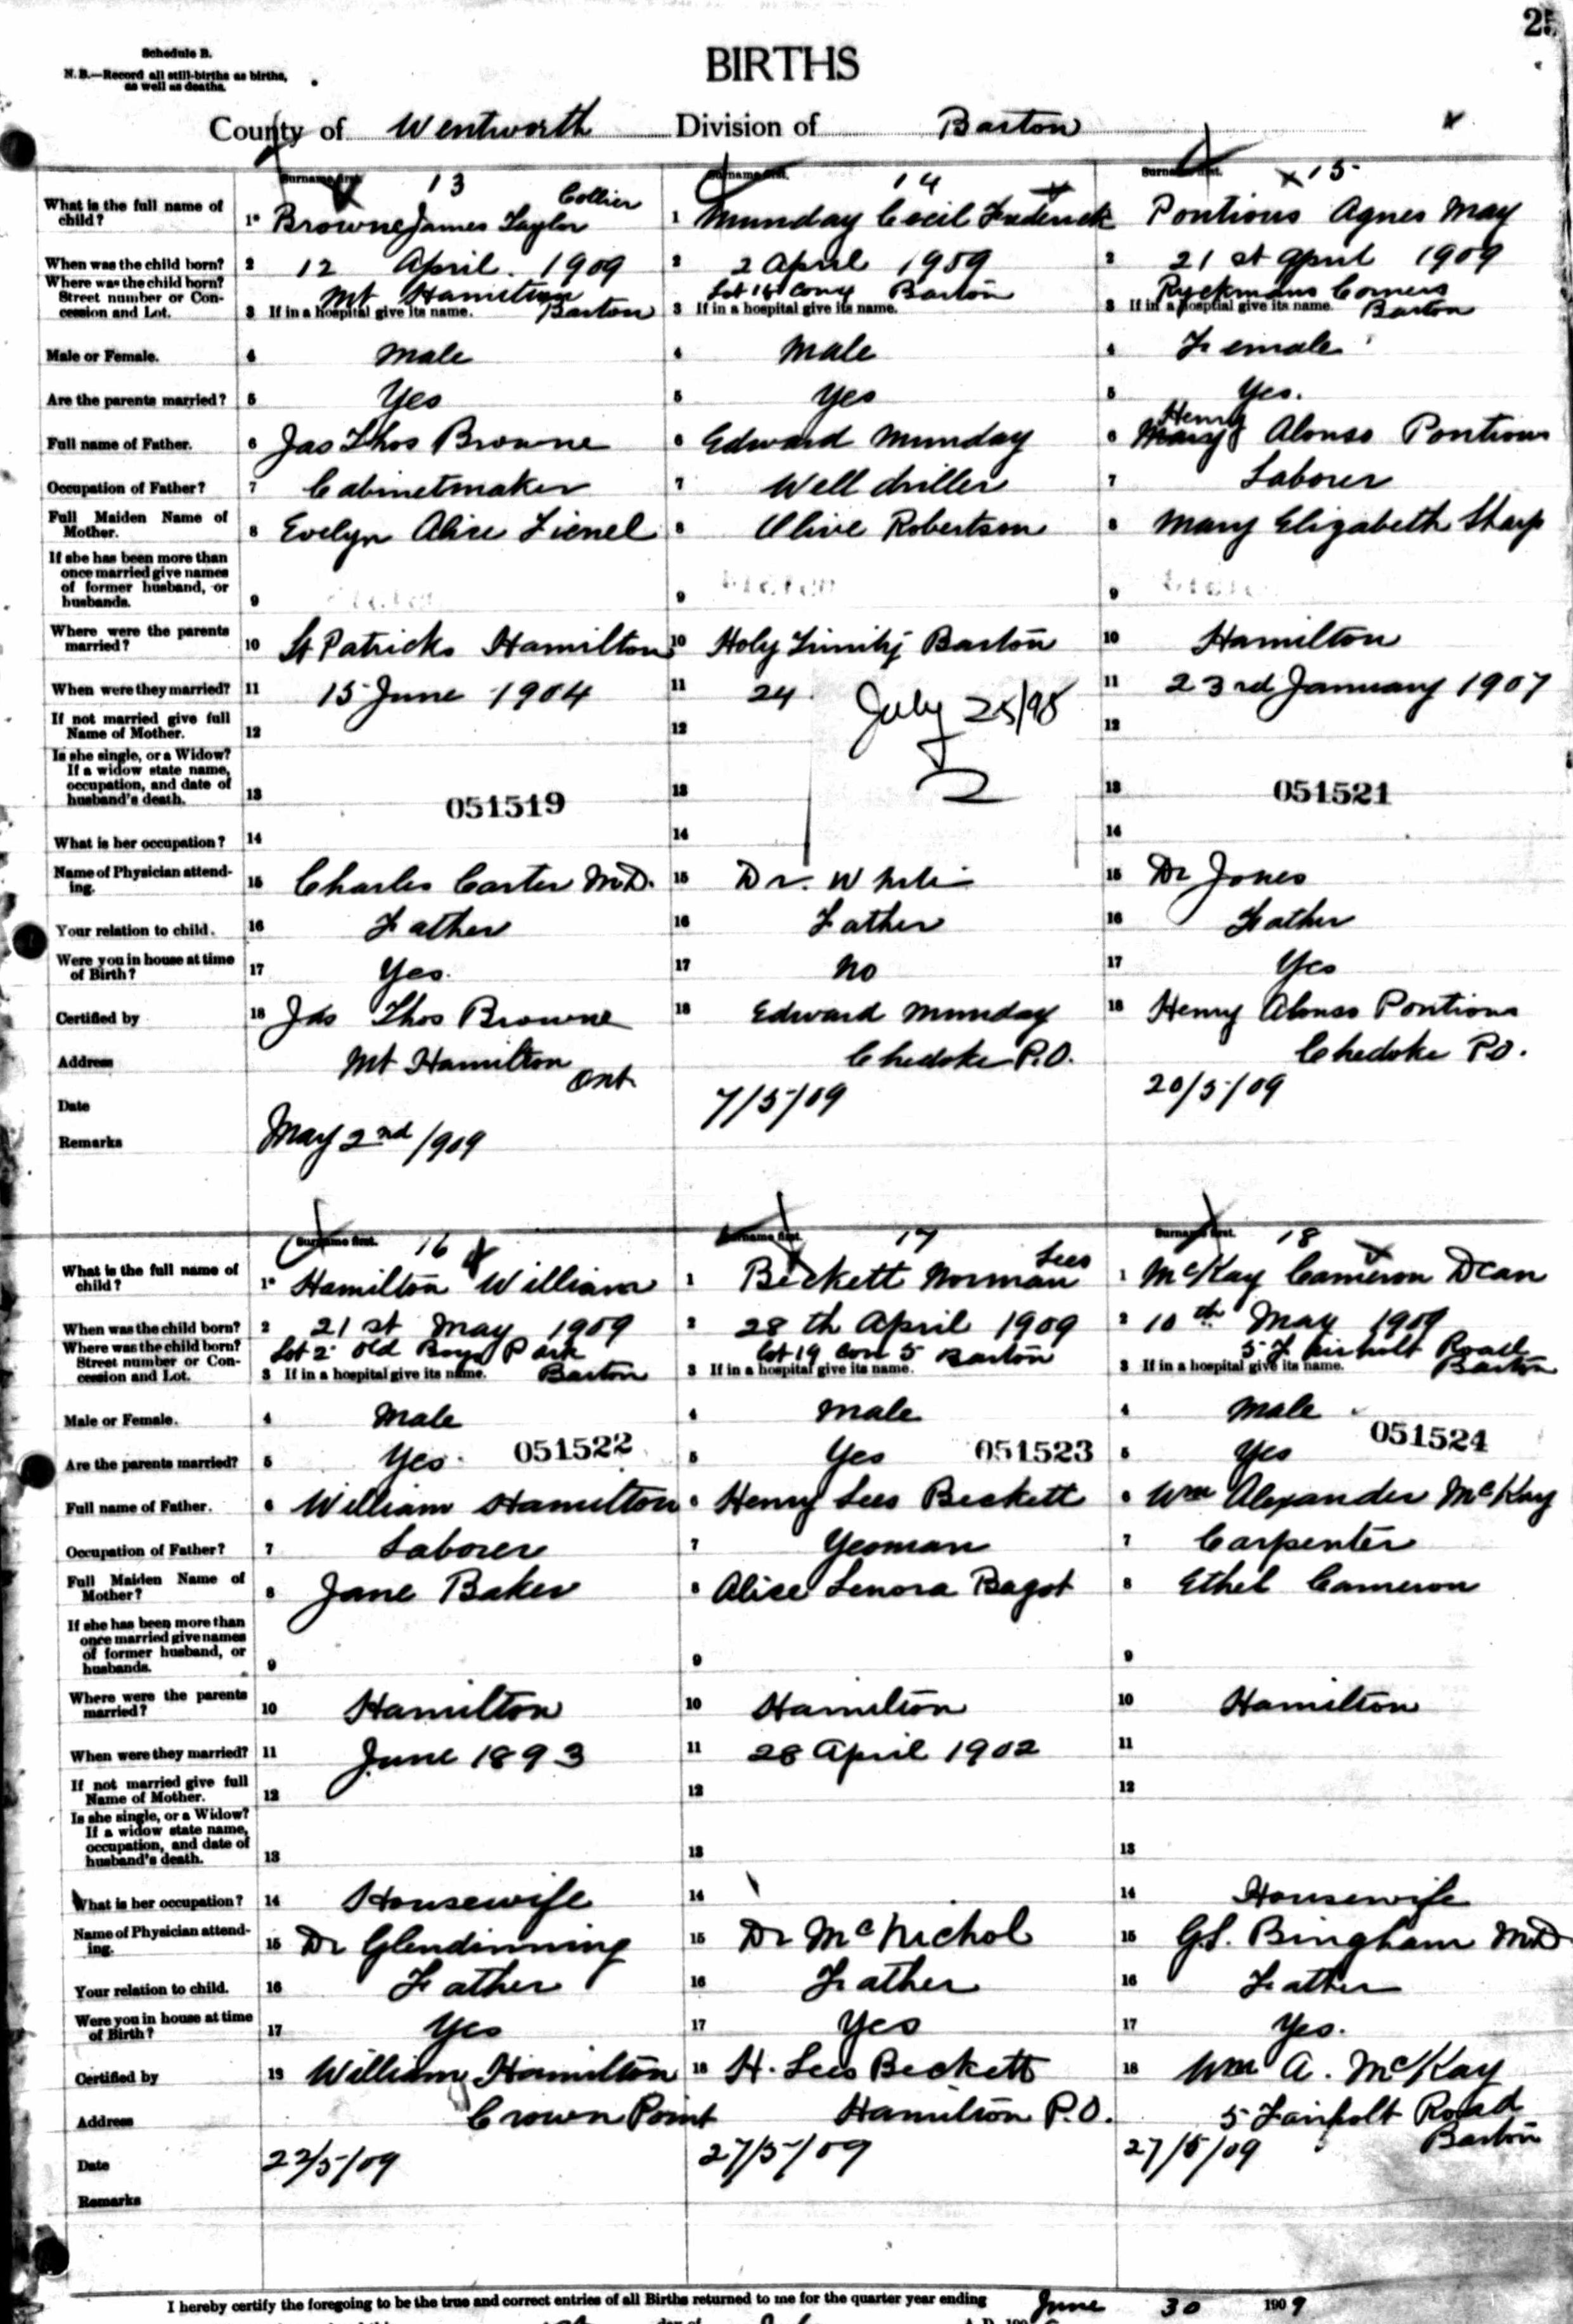 25
Schedule B.
N.B.—Record all still-births as births,
as well as deaths.
BIRTHS
County of Wentworth Division of Barton
Surname first. 13
What is the full name of child? 1 Browne James Taylor Collier
When was the child born? 2 12 April. 1909
Where was the child born? Street number or Concession and Lot. 3 If in a hospital give its name. Mt Hamilton Barton
Male or Female. 4 Male
Are the parents married? 5 Yes
Full name of Father. 6 Jas Thos Browne
Occupation of Father? 7 Cabinetmaker
Full Maiden Name of Mother. 8 Evelyn Alice Lionel
If she has been more than once married give names of former husband, or husbands. 9
Where were the parents married? 10 St Patricks Hamilton
When were they married? 11 15 June 1904
If not married give full Name of Mother. 12
Is she single, or a Widow? If a widow state name, occupation, and date of husband's death. 13
051519
What is her occupation? 14
Name of Physician attending. 15 Charles Carter M.D.
Your relation to child. 16 Father
Were you in house at time of Birth? 17 Yes.
Certified by 18 Jas Thos Browne
Address Mt Hamilton Ont.
Date May 2nd/909
Remarks
Surname first. 14
1 Munday Cecil Frederick
2 2 April 1909
Lot 15 Con 4 Barton
3 If in a hospital give its name.
4 Male
5 Yes
6 Edward Munday
7 Well driller
8 Olive Robertson
9
10 Holy Trinity Barton
11 24 July 25/98
12
13
14
15 Dr.
16 Father
17 No
18 Edward Munday
Chedoke P.O.
7/5/09
Surname first. 15
Pontious Agnes May
2 21 st April 1909
Ryckmans Corners
3 If in a hospital give its name. Barton
4 Female
5 Yes.
6 Henry Mary Alonso Pontious
7 Laborer
8 Mary Elizabeth Sharp
9
10 Hamilton
11 23rd January 1907
12
13
051521
14
15 Dr Jones
16 Father
17 Yes
18 Henry Alonso Pontious
Chedoke P.O.
20/5/09
Surname first. 16
What is the full name of child? 1 Hamilton William
When was the child born? 2 21 st May 1909
Where was the child born? Street number or Concession and Lot. 3 If in a hospital give its name. Lot 2 Old Boys Park Barton
Male or Female. 4 Male
Are the parents married? 5 Yes 051522
Full name of Father. 6 William Hamilton
Occupation of Father? 7 Laborer
Full Maiden Name of Mother? 8 Jane Baker
If she has been more than once married give names of former husband, or husbands. 9
Where were the parents married? 10 Hamilton
When were they married? 11 June 1893
If not married give full Name of Mother. 12
Is she single, or a Widow? If a widow state name, occupation, and date of husband's death. 13
What is her occupation? 14 Housewife
Name of Physician attending. 15 Dr Glendinning
Your relation to child. 16 Father
Were you in house at time of Birth? 17 Yes
Certified by 18 William Hamilton
Address Crown Point
Date 22/5/09
Remarks
Surname first. 17
1 Beckett Norman Lees
2 28 th April 1909
Lot 19 Con 5 Barton
3 If in a hospital give its name.
4 Male
5 Yes 051523
6 Henry Lees Beckett
7 Yeoman
8 Alice Lenora Bagot
9
10 Hamilton
11 28 April 1902
12
13
14
15 Dr McNichol
16 Father
17 Yes
18 H. Lees Beckett
Hamilton P.O.
27/5/09
Surname first. 18
1 McKay Cameron Dean
2 10 th May 1909
5 Fairholt Road
3 If in a hospital give its name. Barton
4 Male
051524
5 Yes
6 Wm Alexander McKay
7 Carpenter
8 Ethel Cameron
9
10 Hamilton
11
12
13
14 Housewife
15 G.S. Bingham M.D.
16 Father
17 Yes.
18 Wm A. McKay
5 Fairholt Road
Barton
27/5/09
I hereby certify the foregoing to be the true and correct entries of all Births returned to me for the quarter year ending June 30 1909